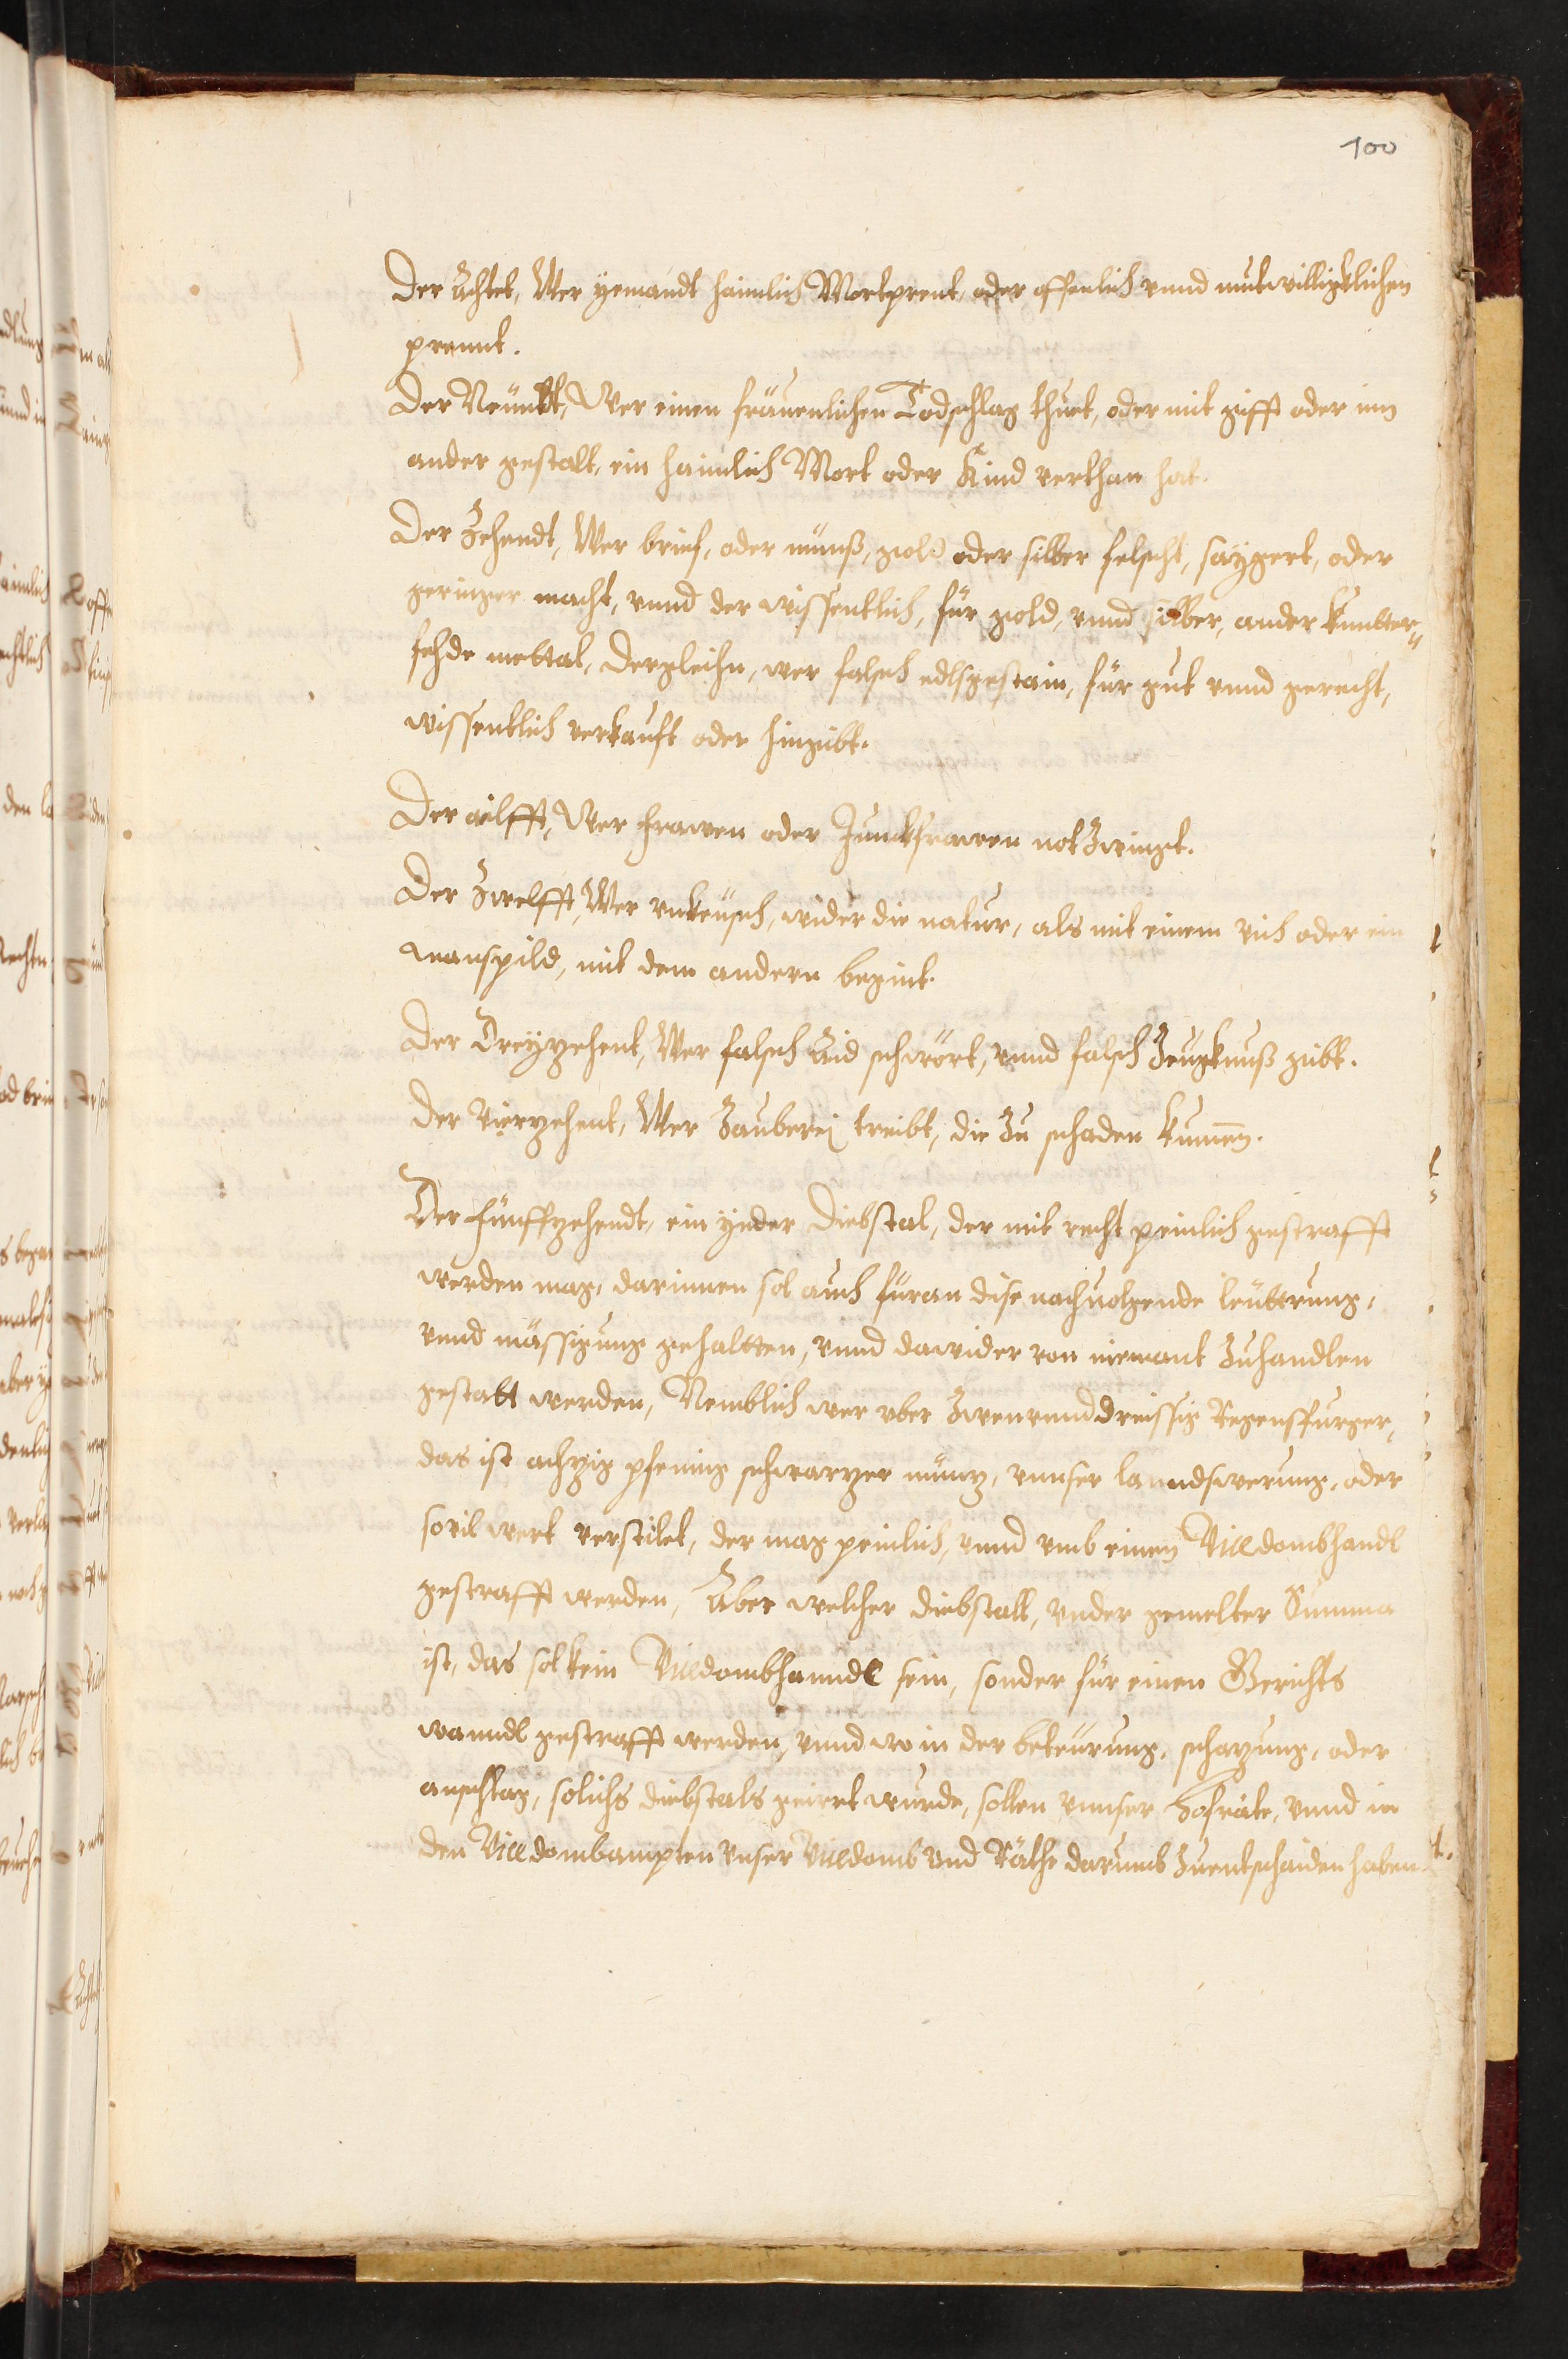 100
Der Achtet, Wer yemandt haimlich Mortprent, oder offenlich vnnd mutwilligklichen
prennt.
Der Neündt, Wer einen fräuenlichen Todschlag thuet, oder mit gifft oder inn
ander gestalt, ein haimlich Mort oder Kind verthan hat.
Der Zehendt, Wer brief, oder münß, gold oder silber felscht, saygert, oder
geringer macht, vnnd der wissentlich, für gold, vnnd silber, ander kuntter„
fehde mettal, dergleichn, wer falsch edlgestain, für gut vnnd gerecht,
wissentlich verkauft oder hingibt.
Der ailfft, Wer frawen oder Junckfrawen notzwingt.
Der Zwelfft, Wer vnkeüsch, wider die natur, als mit einem vich oder ein
manspild, mit dem andern begint.
Der Dreyzehent, Wer falsch Aid schwört, vnnd falsch Zeugknuß gibt.
Der Vierzehent, Wer Zauberej treibt, die zu schaden kumen.
Der fünffzehendt, ein yeder diebstal, der mit recht peinlich gestrafft
werden mag, darinnen sol auch füran dise nachuolgende leütterung,
vnnd mässigung gehaltten, vnnd dawider von niemant zuhandlen
gestatt werden, Nemblich wer vber Zwenvnnddreissig Regenspurger,
das ist achzig pfening schwarzer münz, vnnser lanndswerung, oder
souil wert verstilet, der mag peinlich, vnnd vmb einen Viltzdombhandl
gestrafft werden, Aber welcher diebstall, vnder gemelter Summa
ist, das sol kein Vitzdombhanndl sein, sonder für einen Gerichts
wanndl gestrafft werden, vnnd wo in der beteürung, schazung, oder
anschlag, solichs diebstals geirrt wurde, sollen vnnser Hofräte, vnnd in
den Vitzdombampten vnser Vitzdomb vnd Räthe darumb zuentschaiden haben